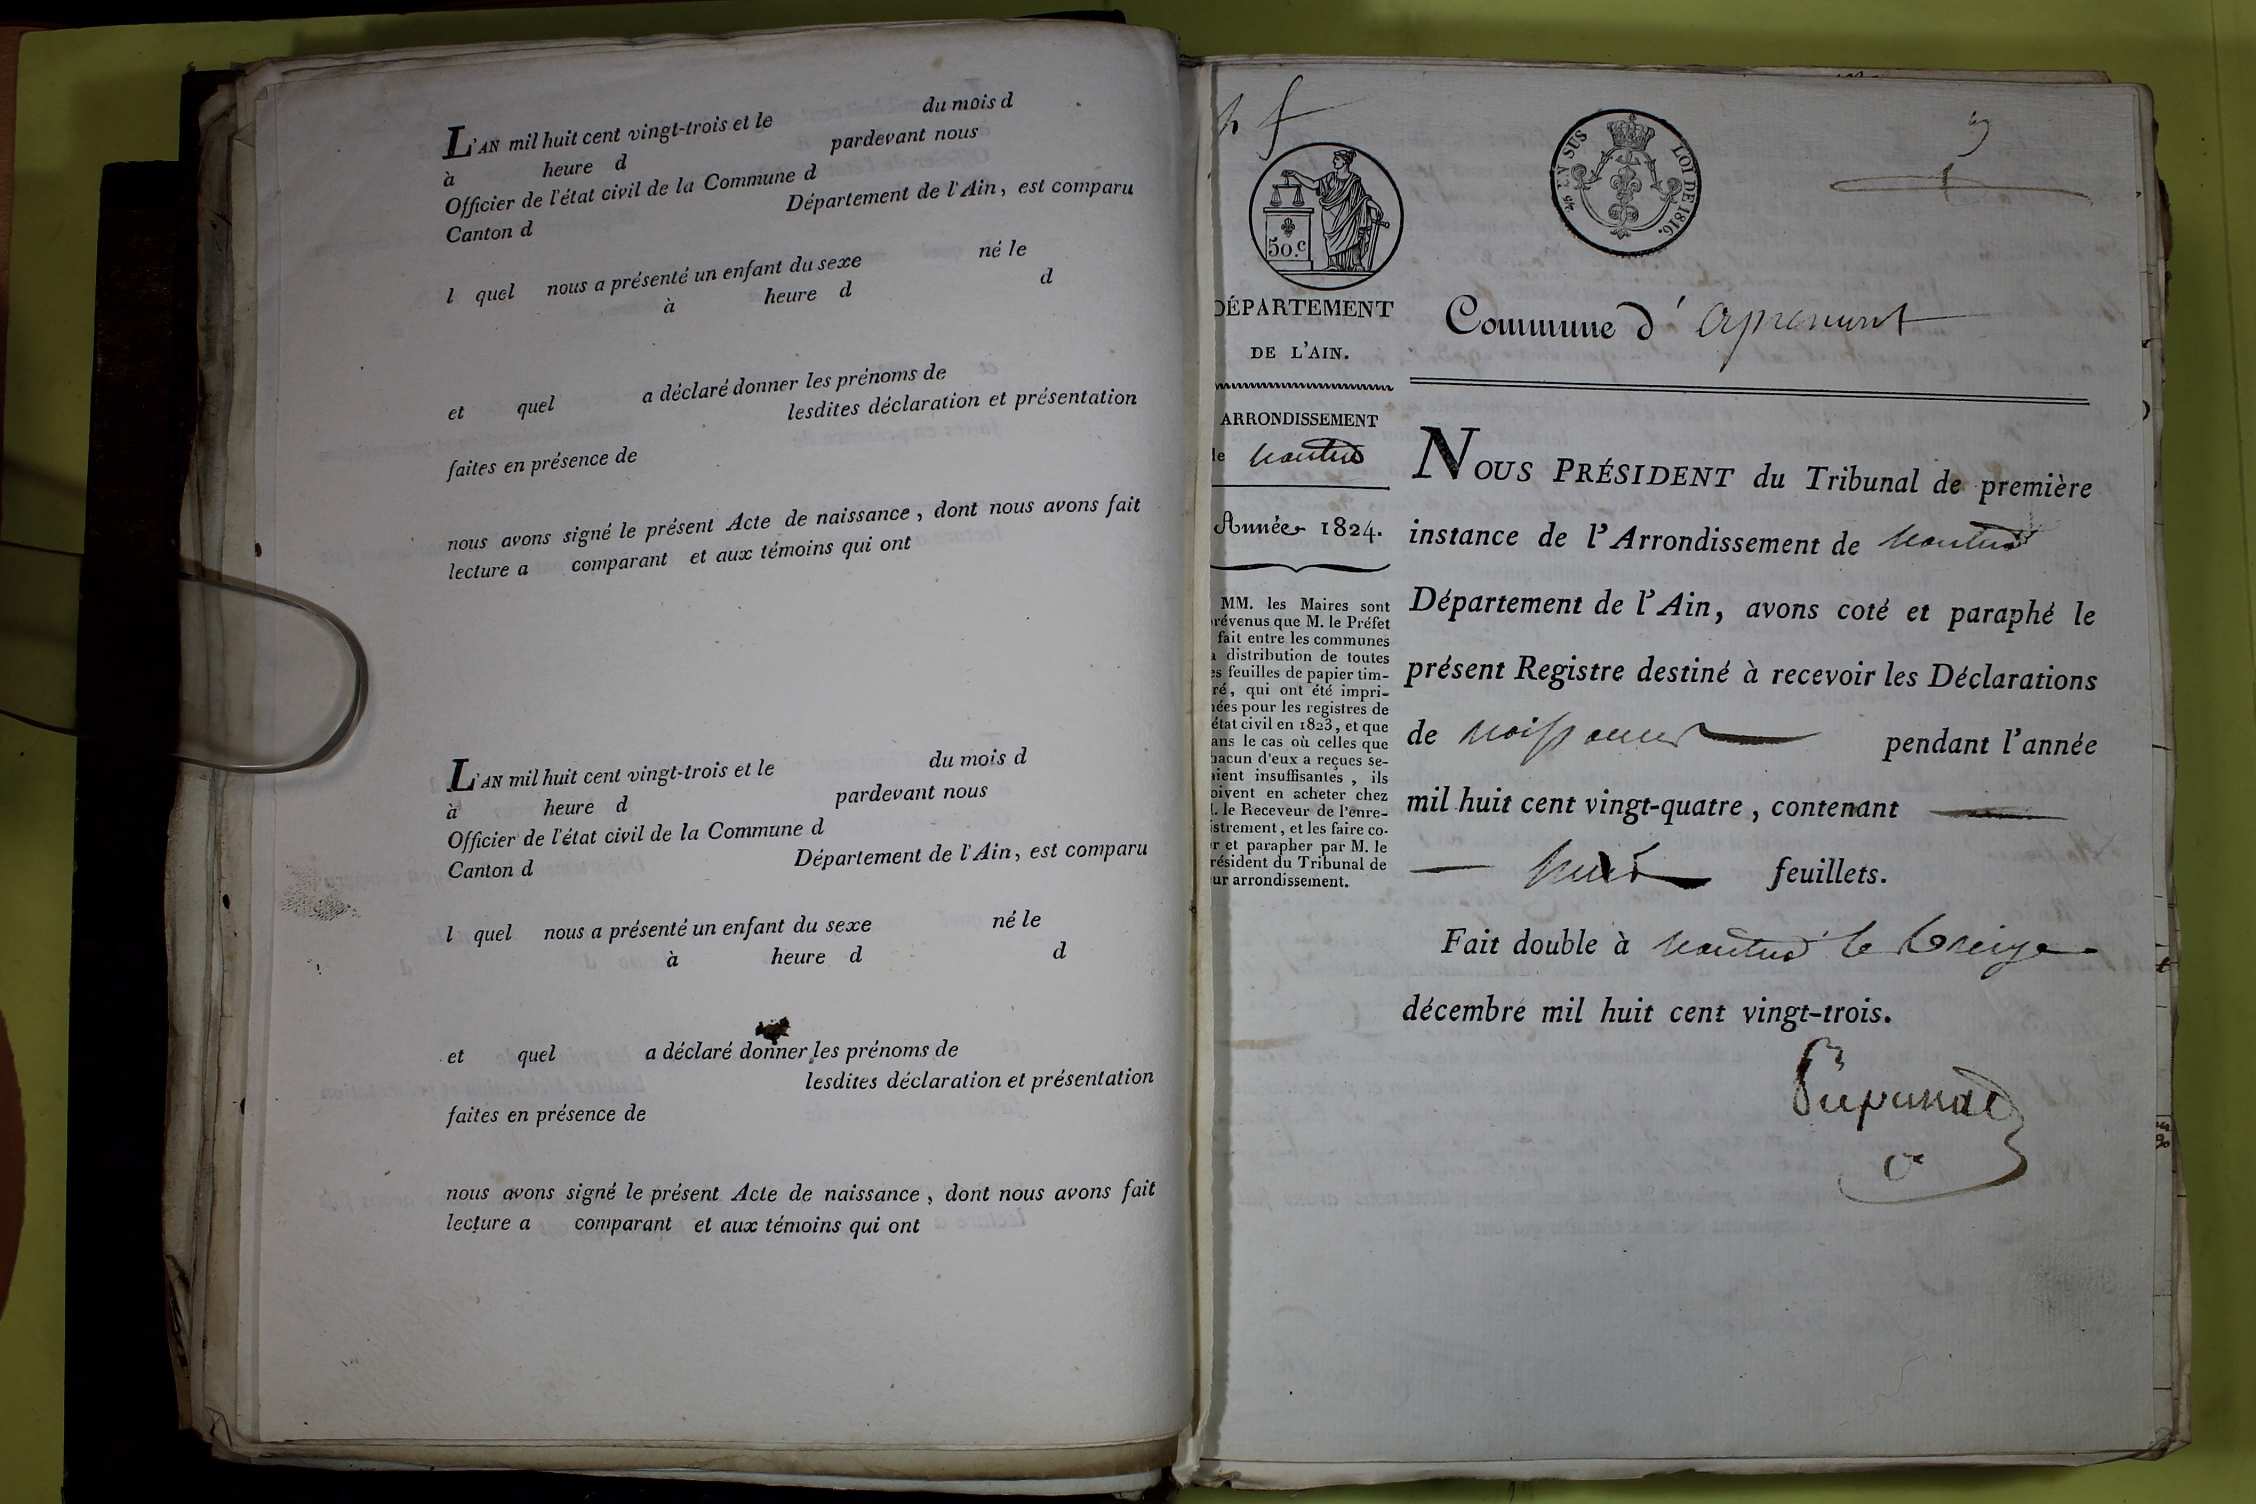 L'AN mil huit cent vingt-trois et le du mois d
à heure d pardevant nous
Officier de l'état civil de la Commune d
Canton d Département de l'Ain, est comparu
l quel nous a présenté un enfant du sexe né le
à heure d d
et quel a déclaré donner les prénoms de
lesdites déclaration et présentation
faites en présence de
nous avons signé le présent Acte de naissance, dont nous avons fait
lecture a comparant et aux témoins qui ont
L'AN mil huit cent vingt-trois et le du mois d
à heure d pardevant nous
Officier de l'état civil de la Commune d
Canton d Département de l'Ain, est comparu
l quel nous a présenté un enfant du sexe né le
à heure d d
et quel a déclaré donner les prénoms de
lesdites déclaration et présentation
faites en présence de
nous avons signé le présent Acte de naissance, dont nous avons fait
lecture a comparant et aux témoins qui ont
50.c
EN SUS LOI DE 1816.
DÉPARTEMENT
DE L'AIN.
ARRONDISSEMENT
de Nantua
Année 1824.
MM. les Maires sont
prévenus que M. le Préfet
fait entre les communes
la distribution de toutes
les feuilles de papier tim-
bré, qui ont été impri-
mées pour les registres de
l'état civil en 1823, et que
dans le cas où celles que
chacun d'eux a reçues se-
raient insuffisantes, ils
doivent en acheter chez
M. le Receveur de l'enre-
gistrement, et les faire co-
ter et parapher par M. le
Président du Tribunal de
leur arrondissement.
Commune d'apremont
NOUS PRÉSIDENT du Tribunal de première
instance de l'Arrondissement de Nantua
Département de l'Ain, avons coté et paraphé le
présent Registre destiné à recevoir les Déclarations
de naissances pendant l'année
mil huit cent vingt-quatre, contenant
huit feuillets.
Fait double à Nantua le treize
décembre mil huit cent vingt-trois.